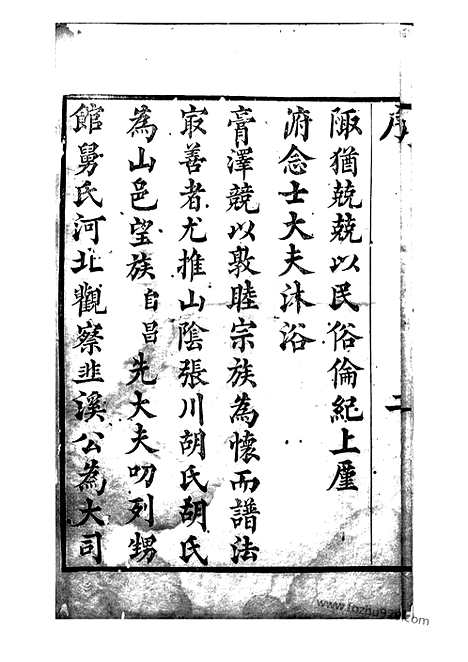 序
二
陬猶兢兢以民俗倫紀上廑
府念士大夫沐浴
膏澤競以敦睦宗族為懷而譜法
㝡善者尤推山陰張川胡氏胡氏
為山邑望族自昌先大夫叨列甥
館舅氏河北觀察韭溪公為大司
www.fozhu920.com